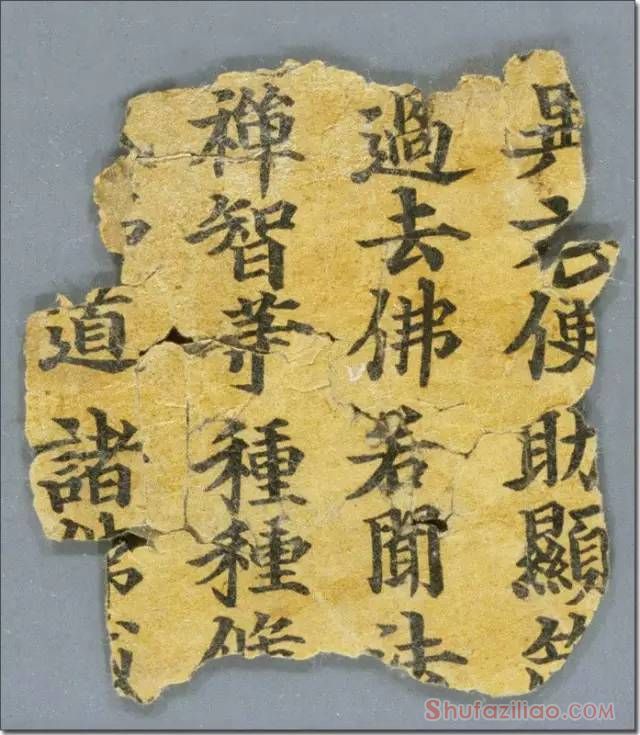 異方便助顯
過去佛若聞法
禪智等種種修
道諸
Shufaziliao.COM